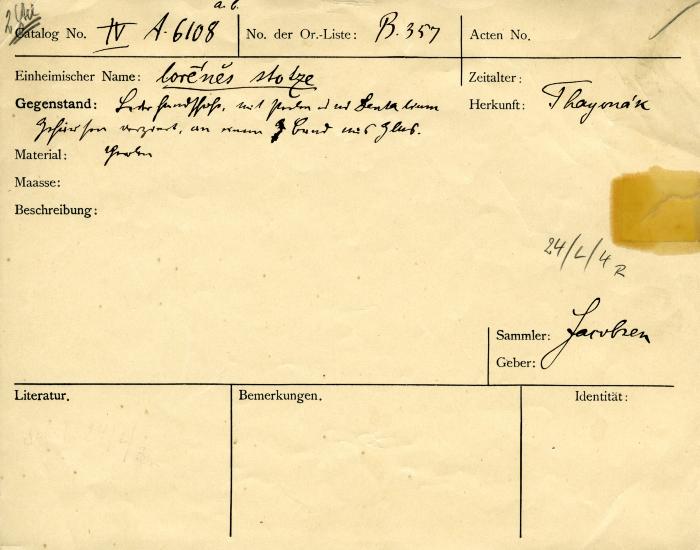 2 Stü
a.b.
Catalog No. IV A. 6108
No. der Or.-Liste: B. 357
Acten No.
Einheimischer Name: lorĕnĕs stotze
Zeitalter:
Gegenstand: Lederhandschuhe, mit Perlen und Dentalium
Herkunft: Thagonák
verziert, an einem Band aus Glas.
Material:
Maasse:
Beschreibung:
24/L/4
R
Sammler: Jacobsen
Geber:
Literatur.
Bemerkungen.
Identität: